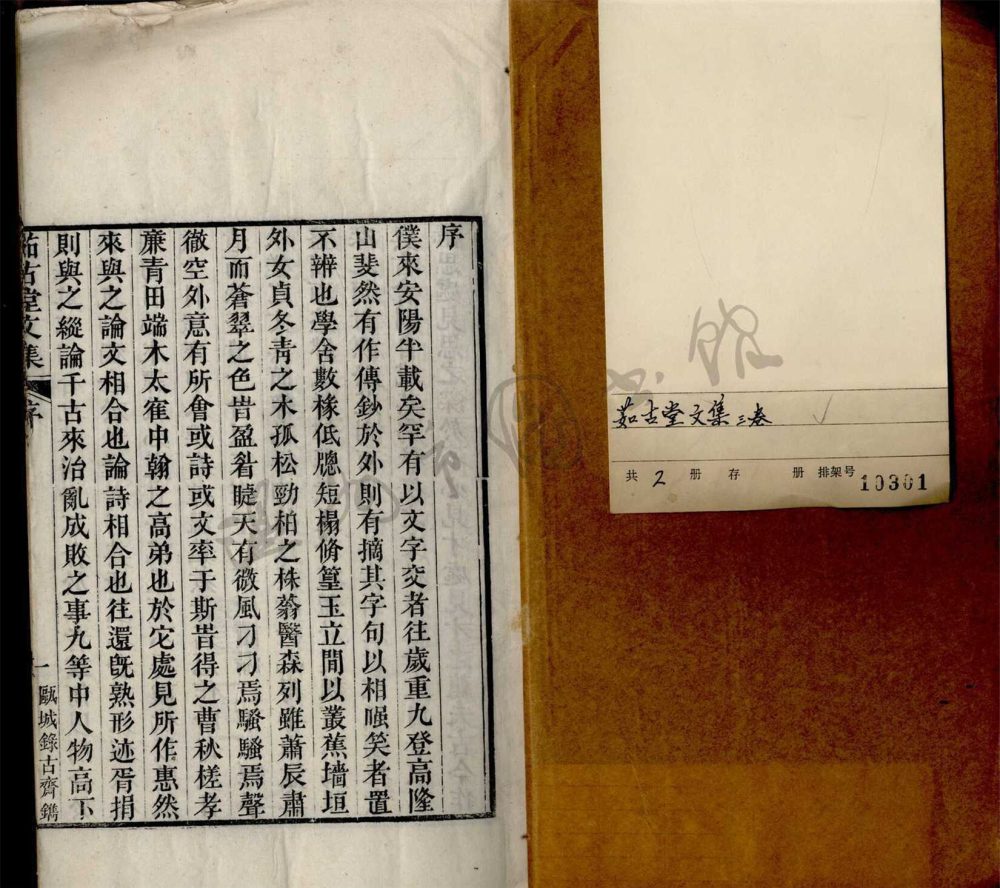 茹古堂文集 三卷
共 2 册 存 册 排架号 10301
序
僕來安陽半載矣罕有以文字交者往歲重九登高隆
山斐然有作傳鈔於外則有摘其字句以相嗢笑者置
不辨也學舍數椽低牕短榻脩篁玉立間以叢蕉墻垣
外女貞冬青之木孤松勁柏之株蓊翳森列雖蕭辰肅
月而蒼翠之色昔盈眥睫天有微風刁刁焉騷騷焉聲
徹空外意有所會或詩或文率于斯昔得之曹秋槎孝
廉青田端木太隺中翰之高弟也於它處見所作惠然
來與之論文相合也論詩相合也往還旣熟形迹胥捐
則與之縱論千古來治亂成敗之事九等中人物高下
茹古堂文集 序 一 甌城錄古齊鐫